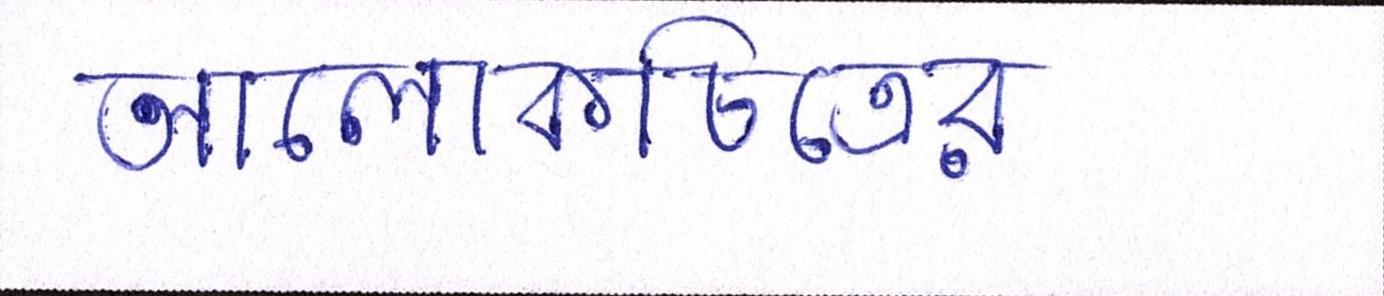 আলোকচিত্রের